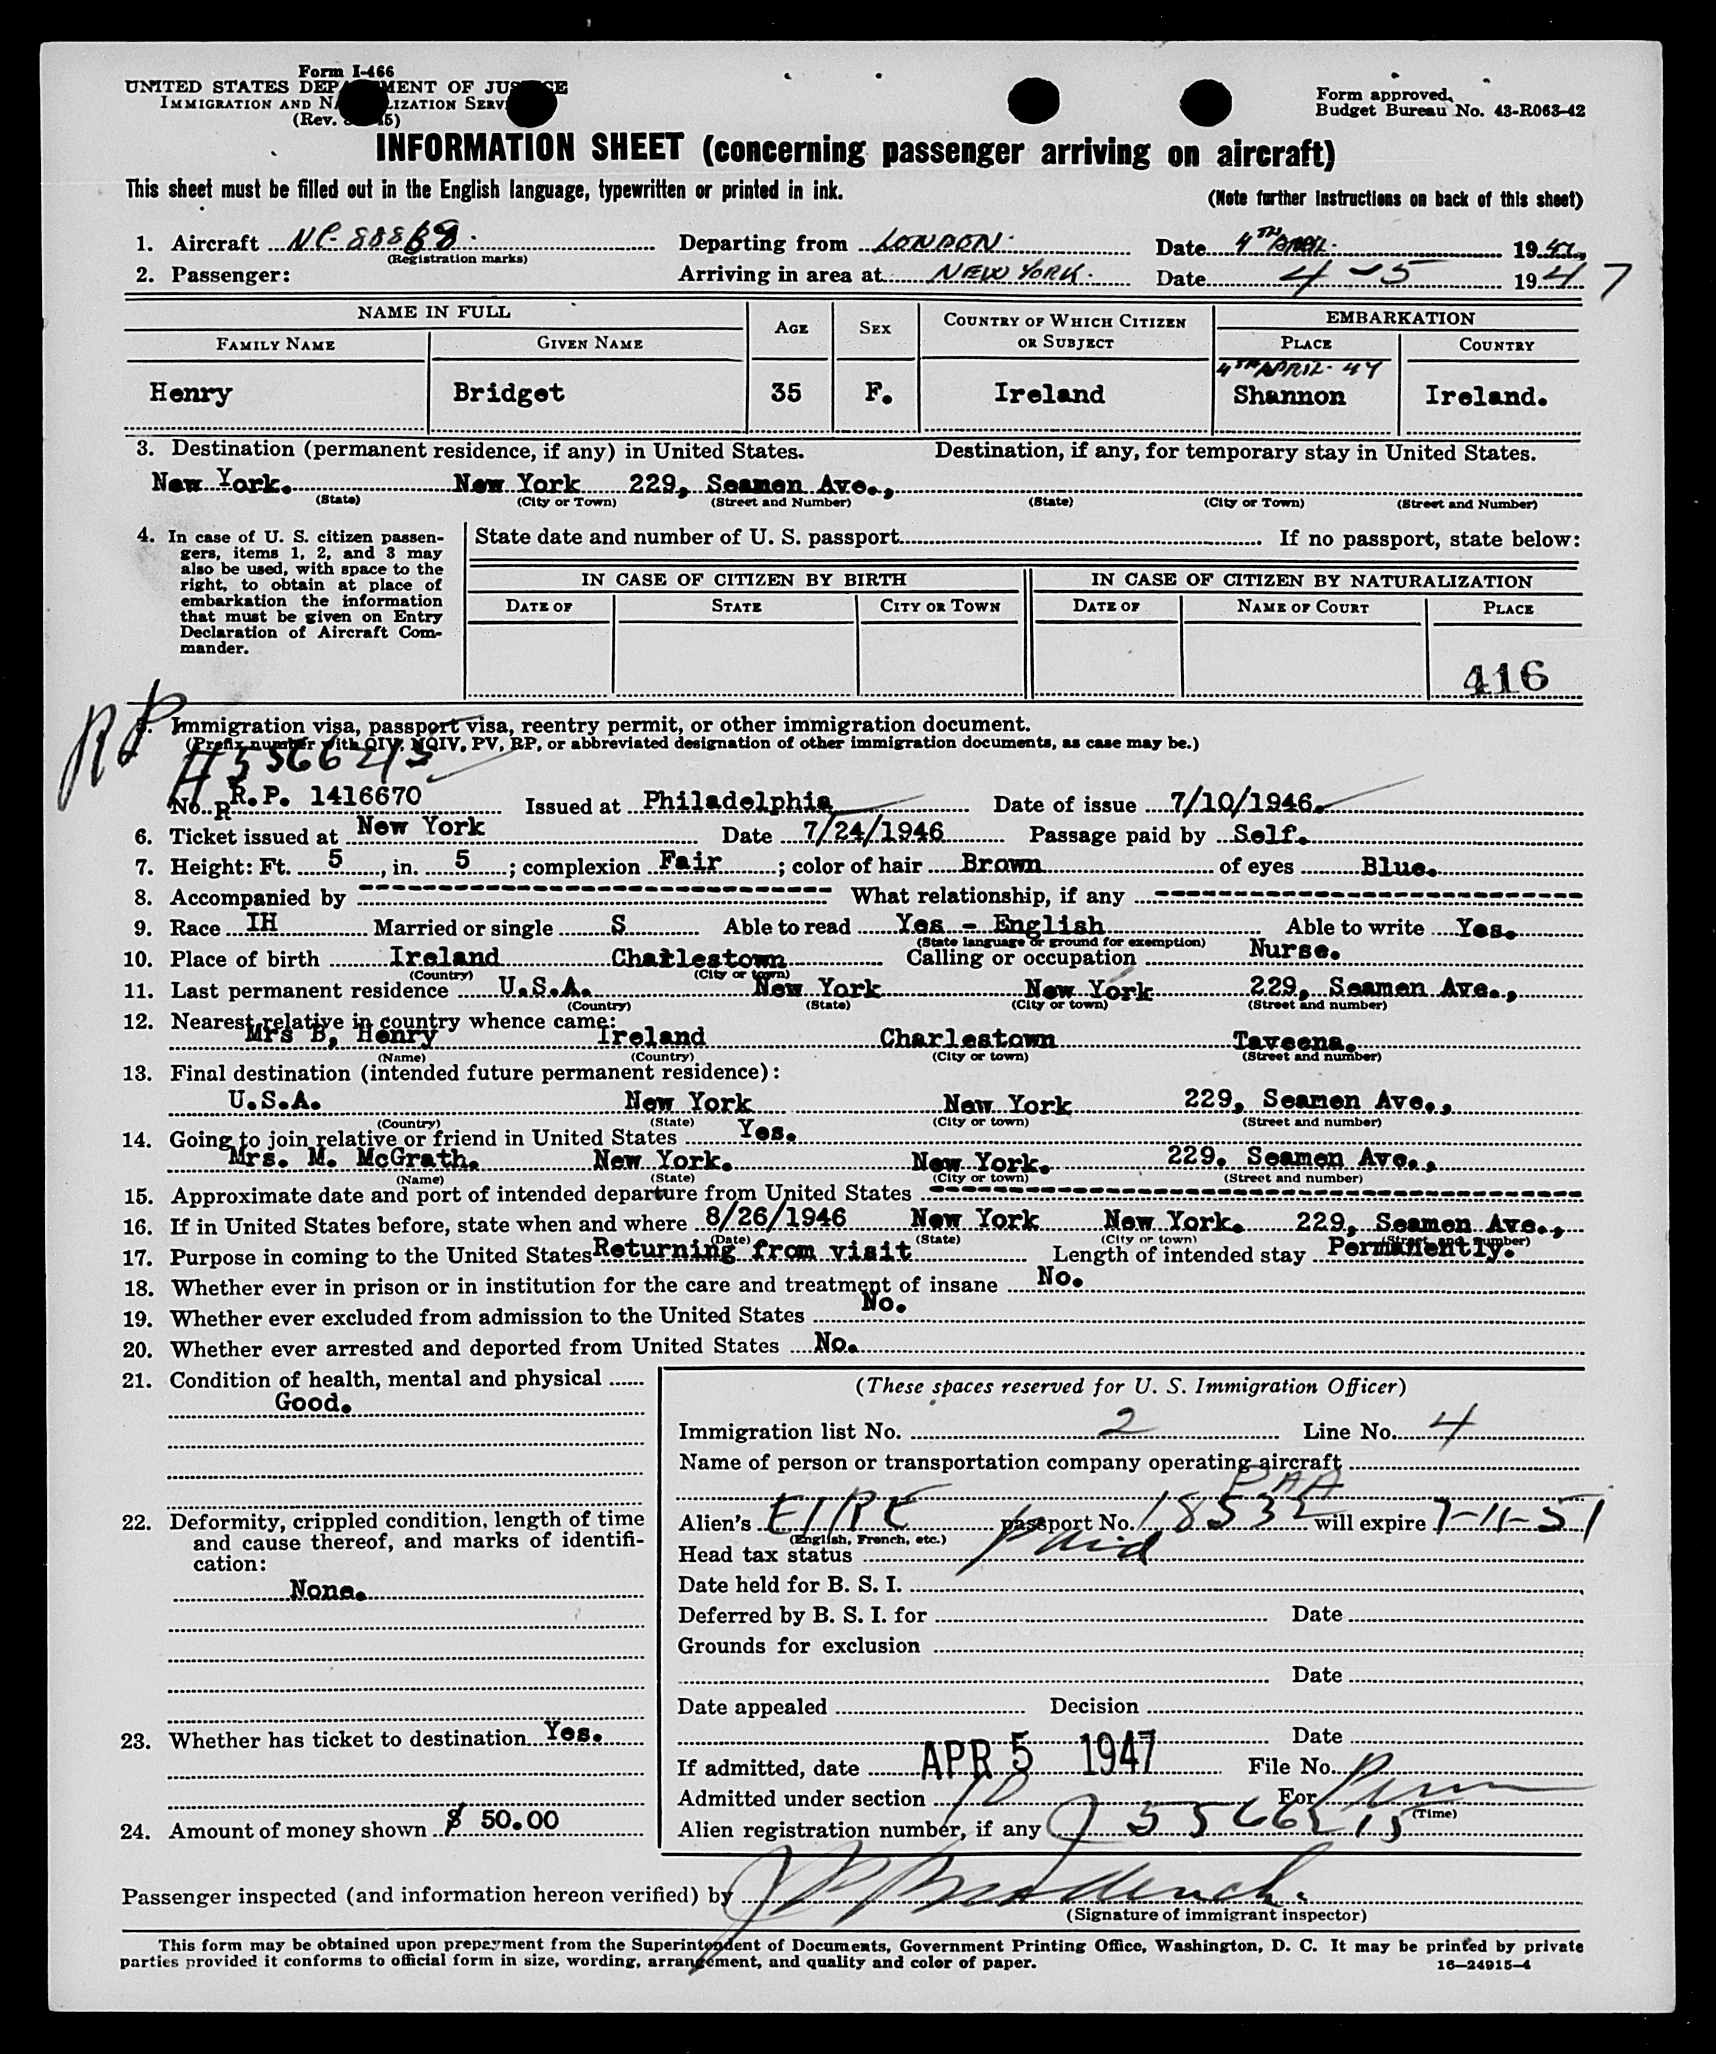 Form I-466
UNITED STATES DEPARTMENT OF JUSTICE
IMMIGRATION AND NATURALIZATION SERVICE
(Rev.
Form approved.
Budget Bureau No. 43-R063-42
INFORMATION SHEET (concerning passenger arriving on aircraft)
This sheet must be filled out in the English language, typewritten or printed in ink.
(Note further instructions on back of this sheet)
1. Aircraft Departing from LONDON. Date 4TH APRIL. 1947
(Registration marks)
2. Passenger: Arriving in area at NEW YORK. Date 4-5 1947
NAME IN FULL AGE SEX COUNTRY OF WHICH CITIZEN OR SUBJECT EMBARKATION
FAMILY NAME GIVEN NAME PLACE COUNTRY
4TH APRIL. 47
Henry Bridget 35 F. Ireland Shannon Ireland.
3. Destination (permanent residence, if any) in United States. Destination, if any, for temporary stay in United States.
New York. New York 229, Seamen Ave.,
(State) (City or Town) (Street and Number) (State) (City or Town) (Street and Number)
4. In case of U. S. citizen passengers, items 1, 2, and 3 may also be used, with space to the right, to obtain at place of embarkation the information that must be given on Entry Declaration of Aircraft Commander.
State date and number of U. S. passport If no passport, state below:
IN CASE OF CITIZEN BY BIRTH IN CASE OF CITIZEN BY NATURALIZATION
DATE OF STATE CITY OR TOWN DATE OF NAME OF COURT PLACE
416
RP
5. Immigration visa, passport visa, reentry permit, or other immigration document.
(Prefix number with QIV, NQIV, PV, RP, or abbreviated designation of other immigration documents, as case may be.)
No. R R.P. 1416670 Issued at Philadelphia Date of issue 7/10/1946.
6. Ticket issued at New York Date 7/24/1946 Passage paid by Self.
7. Height: Ft. 5, in. 5; complexion Fair; color of hair Brown of eyes Blue.
8. Accompanied by ---------- What relationship, if any ----------
9. Race IH Married or single S Able to read Yes - English Able to write Yes.
(State language or ground for exemption)
10. Place of birth Ireland Charlestown Calling or occupation Nurse.
(Country) (City or town)
11. Last permanent residence U.S.A. New York New York 229, Seamen Ave.,
(Country) (State) (City or town) (Street and number)
12. Nearest relative in country whence came:
Mrs B, Henry Ireland Charlestown Taveena.
(Name) (Country) (City or town) (Street and number)
13. Final destination (intended future permanent residence):
U.S.A. New York New York 229, Seamen Ave.,
(Country) (State) (City or town) (Street and number)
14. Going to join relative or friend in United States Yes.
Mrs. M. McGrath. New York. New York. 229. Seamen Ave.,
(Name) (State) (City or town) (Street and number)
15. Approximate date and port of intended departure from United States ----------
16. If in United States before, state when and where 8/26/1946 New York New York. 229, Seamen Ave.,
(Date) (State) (City or town) (Street and number)
17. Purpose in coming to the United States Returning from visit Length of intended stay Permanently.
18. Whether ever in prison or in institution for the care and treatment of insane No.
19. Whether ever excluded from admission to the United States No.
20. Whether ever arrested and deported from United States No.
21. Condition of health, mental and physical
Good.
22. Deformity, crippled condition, length of time and cause thereof, and marks of identification:
None.
23. Whether has ticket to destination Yes.
24. Amount of money shown $ 50.00
(These spaces reserved for U. S. Immigration Officer)
Immigration list No. 2 Line No. 4
Name of person or transportation company operating aircraft
PAA
Alien's EIRE passport No. 18532 will expire 7-11-51
(English, French, etc.)
Head tax status paid
Date held for B. S. I.
Deferred by B. S. I. for Date
Grounds for exclusion
Date
Date appealed Decision
Date
If admitted, date APR 5 1947 File No.
Admitted under section For Perm
(Time)
Alien registration number, if any
Passenger inspected (and information hereon verified) by
(Signature of immigrant inspector)
This form may be obtained upon prepayment from the Superintendent of Documents, Government Printing Office, Washington, D. C. It may be printed by private
parties provided it conforms to official form in size, wording, arrangement, and quality and color of paper.
16—24915-4